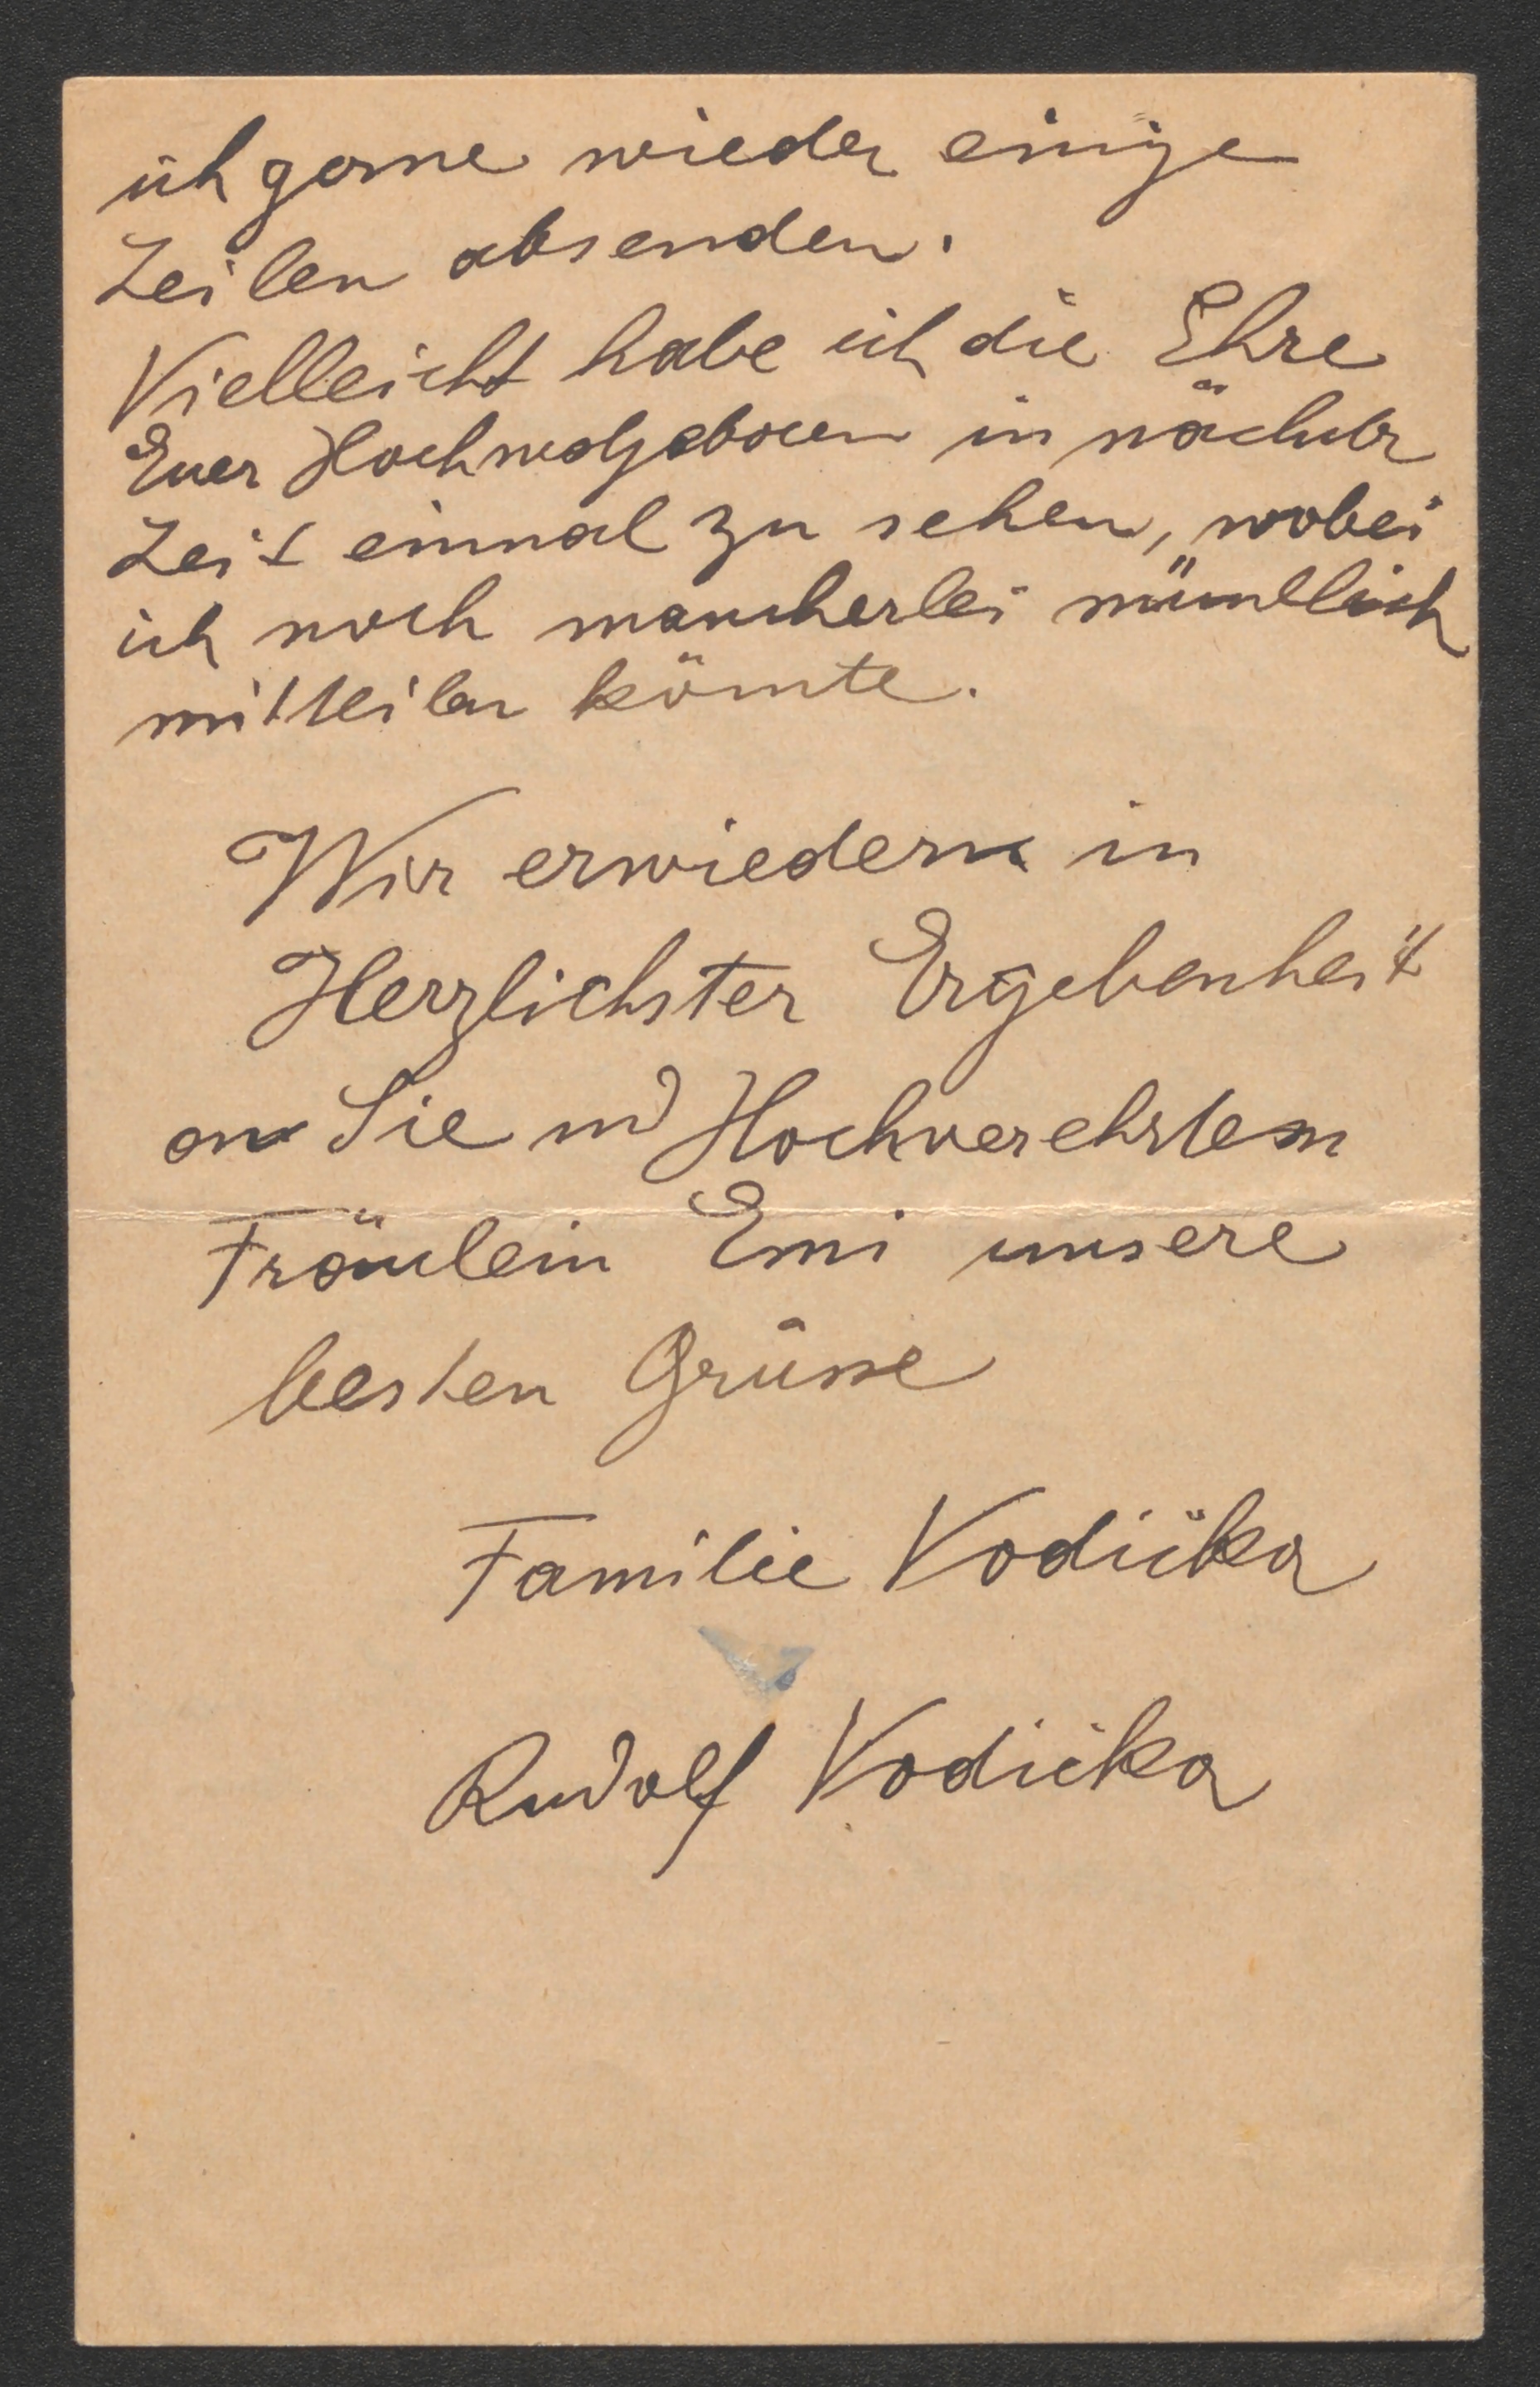 ich gerne wieder einige
Zeilen absenden.
Vielleicht habe ich die Ehre
Euer Hochwolgeboren in nächster
Zeit einmal zu sehen, wobei
ich noch mancherlei mündlich
mitteilen könnte.
Wir erwiedern in
Herzlichster Ergebenheit
an Sie und Hochverehrtem
Fräulein Emi unsere
besten Grüsse
Familie Vodička
Rudolf Vodička